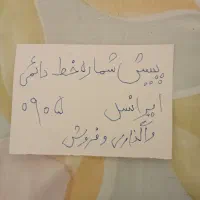 پیش شماره خط دائمی
ایرانسل ۰۹۰۵
واگذاری و فروش